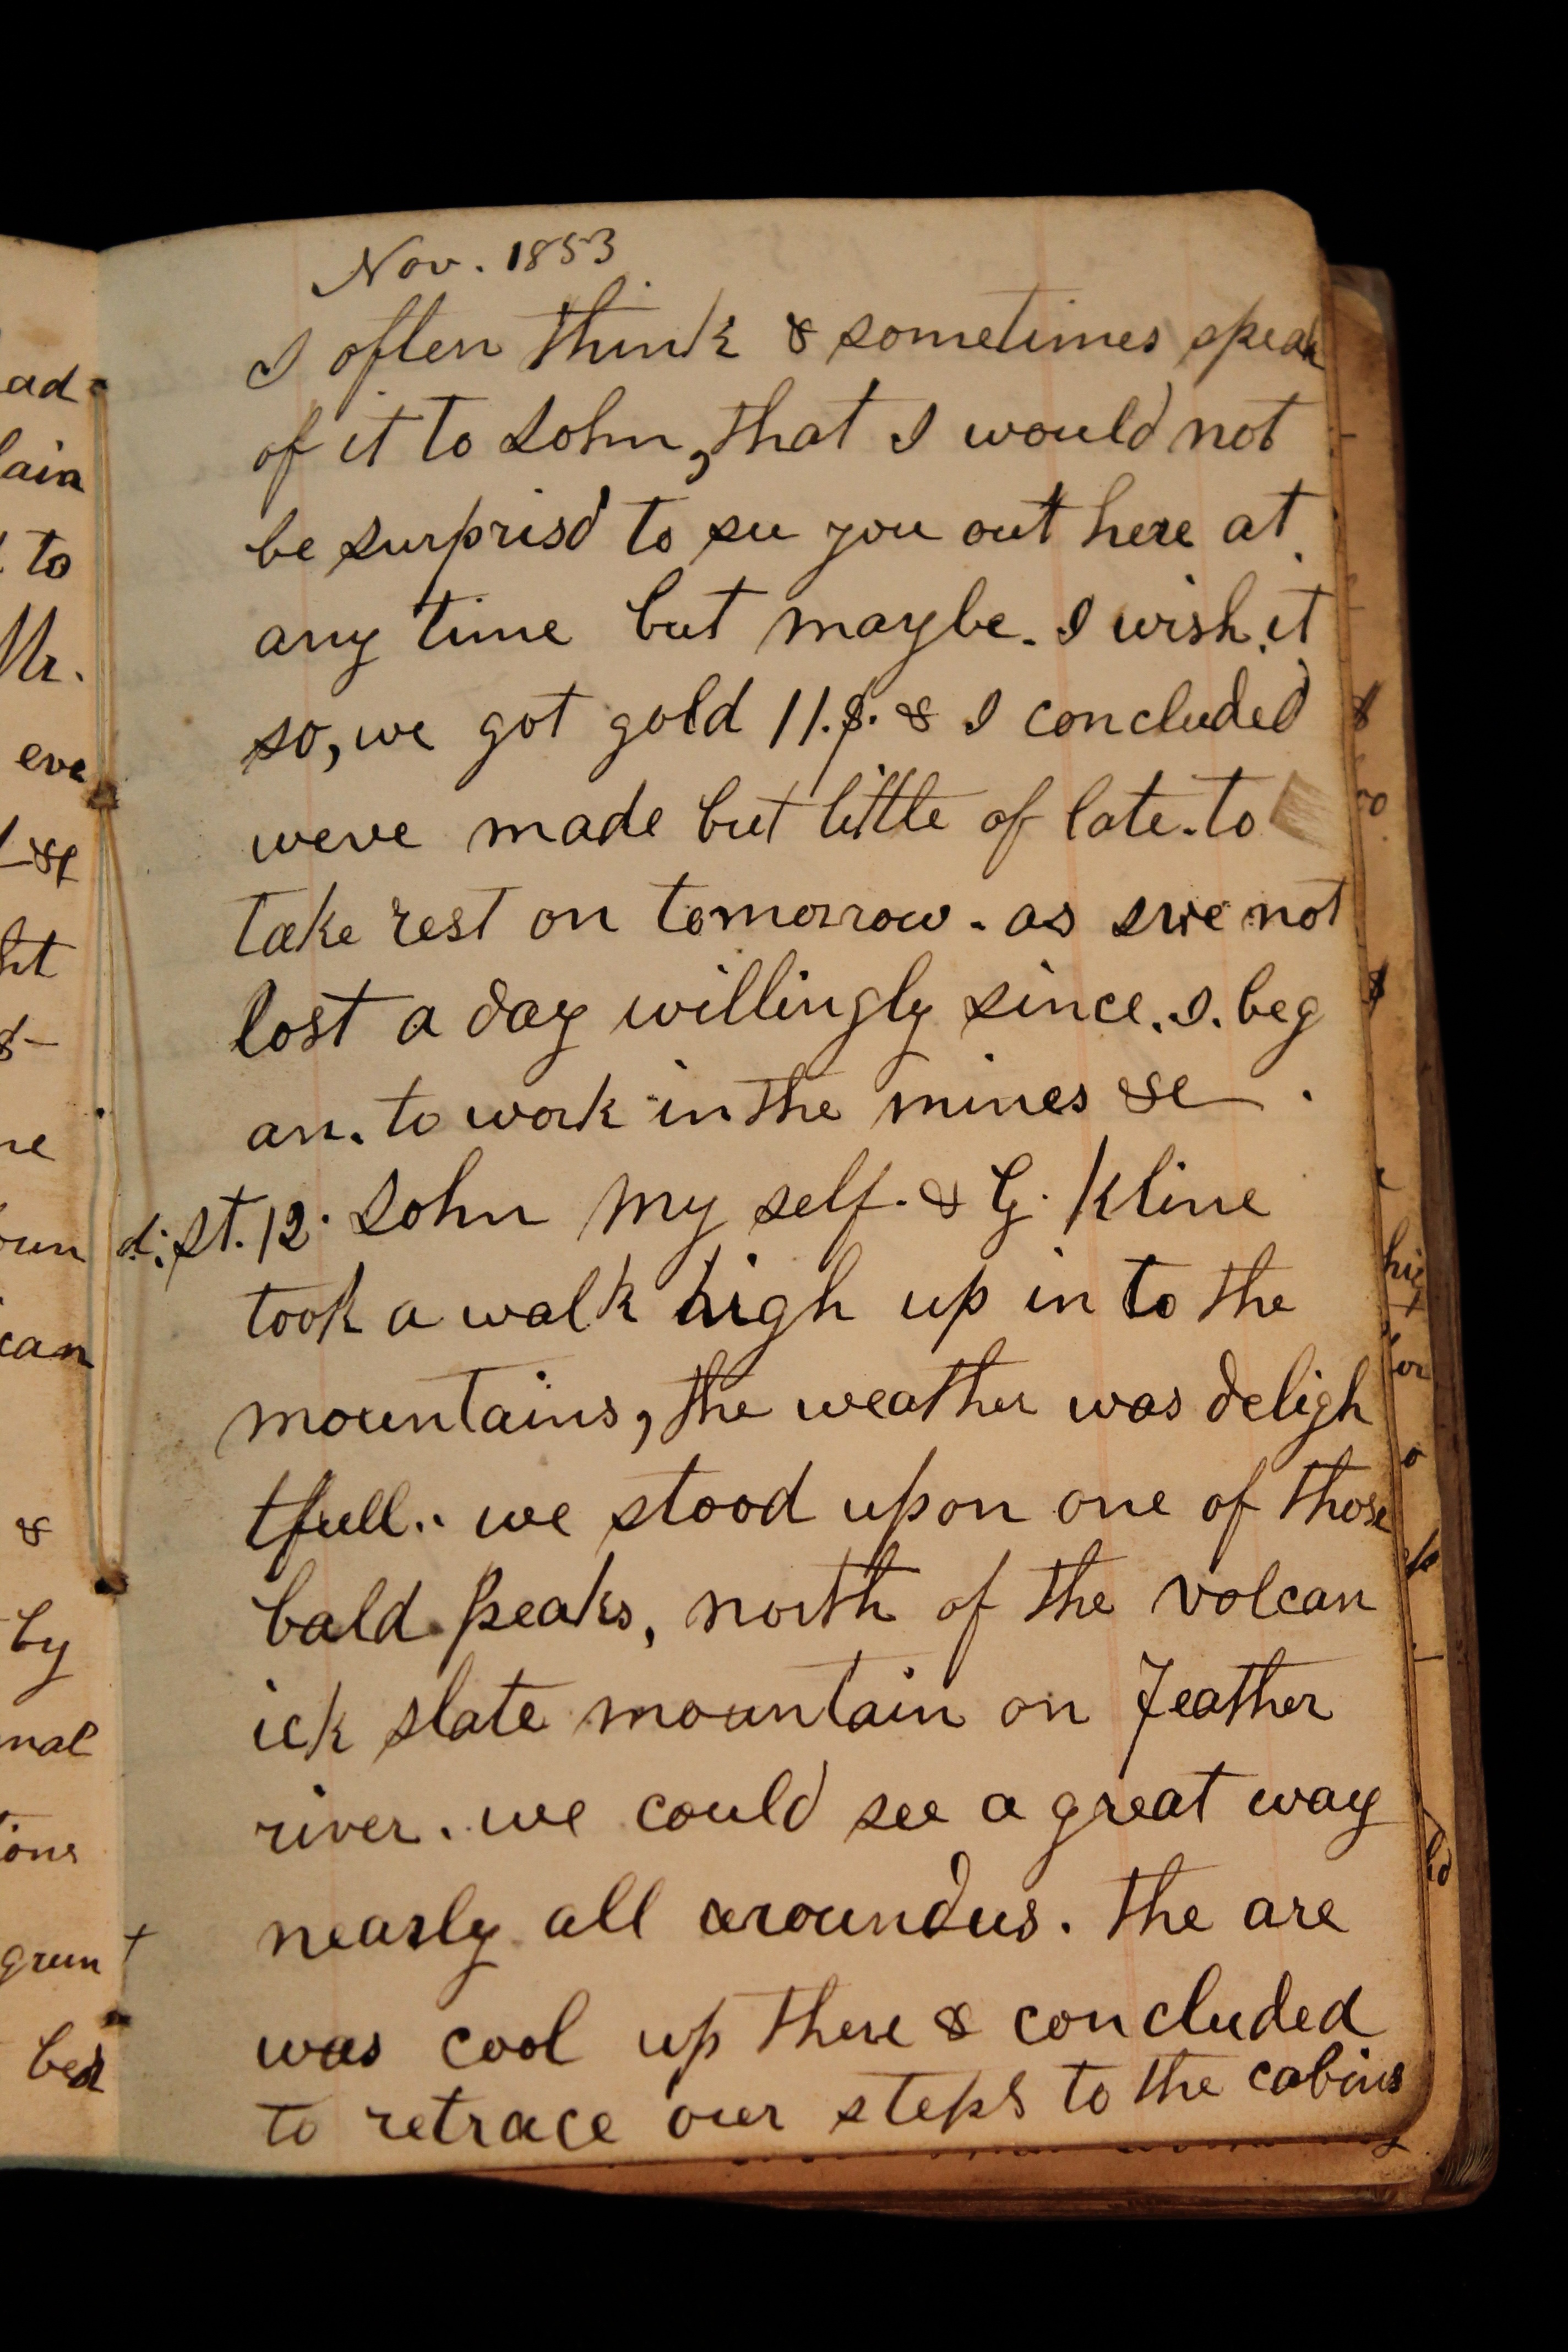 Nov. 1853
I often think & sometimes speak
of it to John, that I would not
be surprisd to see you out here at
any time but maybe. I wish it
so, we got gold 11.$. & I concluded
weve made but little of late. to
take rest on tomorrow. as Ive not
lost a day willingly since. I. beg
an. to work in the mines &c
d: st. 12. John my self. & G. Kline
took a walk high up in to the
mountains, the weather was deligh
tfull. we stood upon one of those
bald peaks, north of the volcan
ick slate mountain on Feather
river. we could see a great way
nearly all aroundus. the are
was cool up there & concluded
to retrace our steps to the cabins
ad
lain
to
Mr.
eve
ht
ne
oun
can
&
by
nal
ions
grun
bed